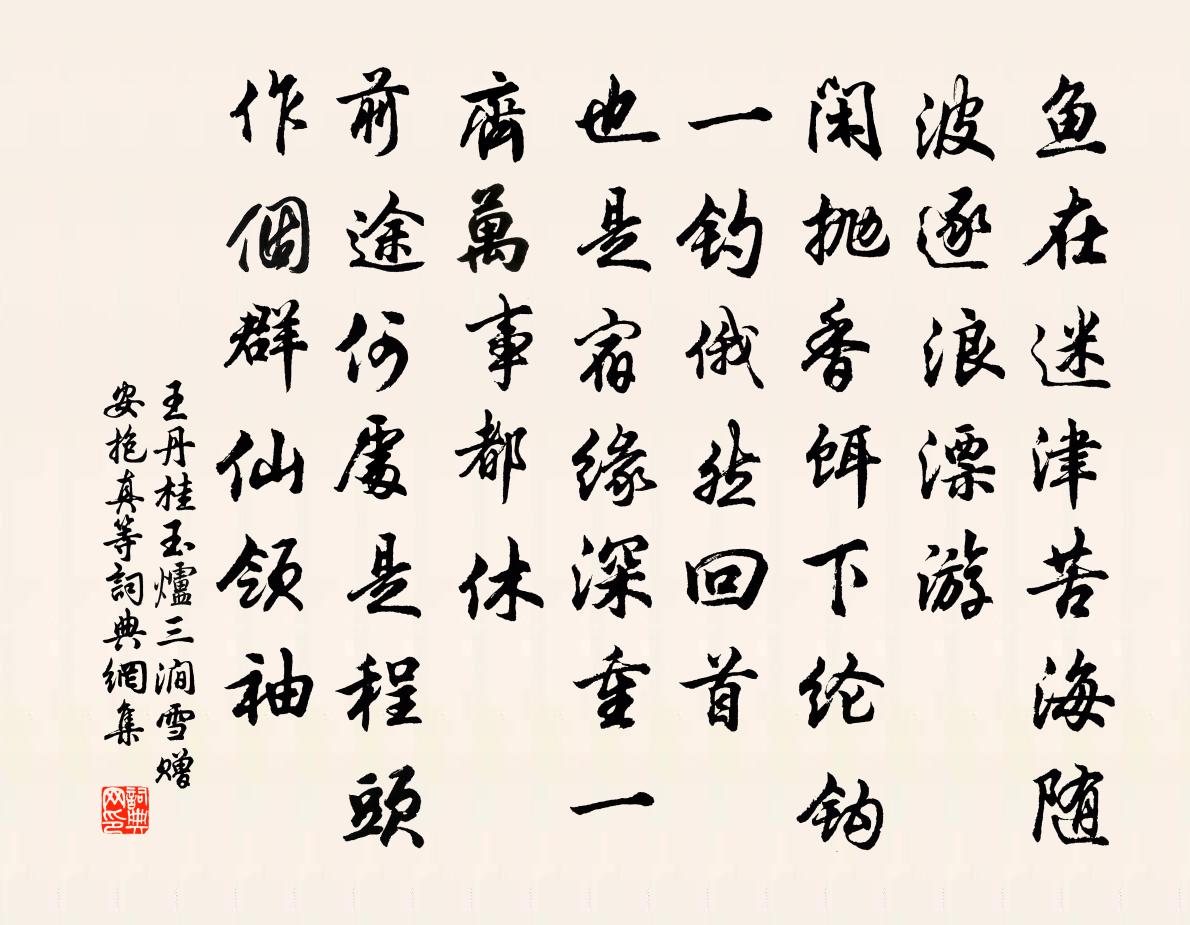 鱼在迷津苦海随
波逐浪漂游
闲抛香饵下纶钩
一钓俄然回首
也是宿缘深重一
齊萬事都休
前途何處是程頭
作個群仙領袖
王丹桂玉爐三澗雪赠
安抱真等詞典網集
詞典网印